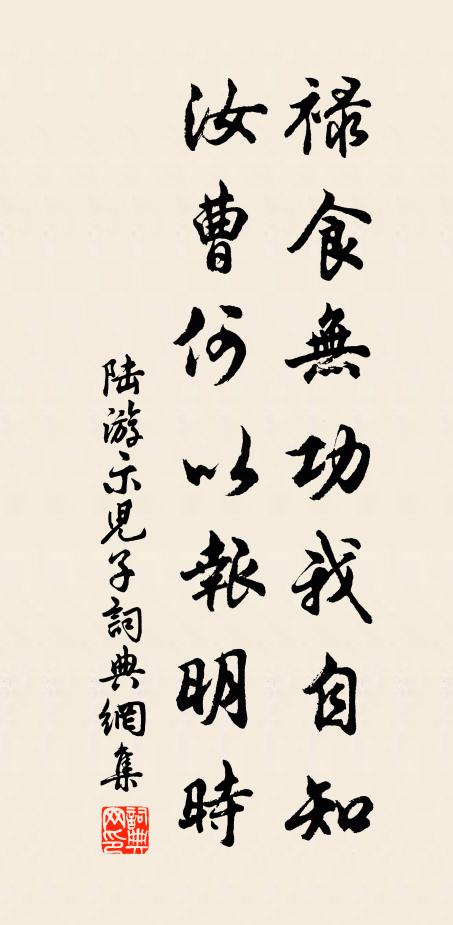 祿食無功我自知
汝曹何以報明時
陆游示兒子詞典網集
詞典網印